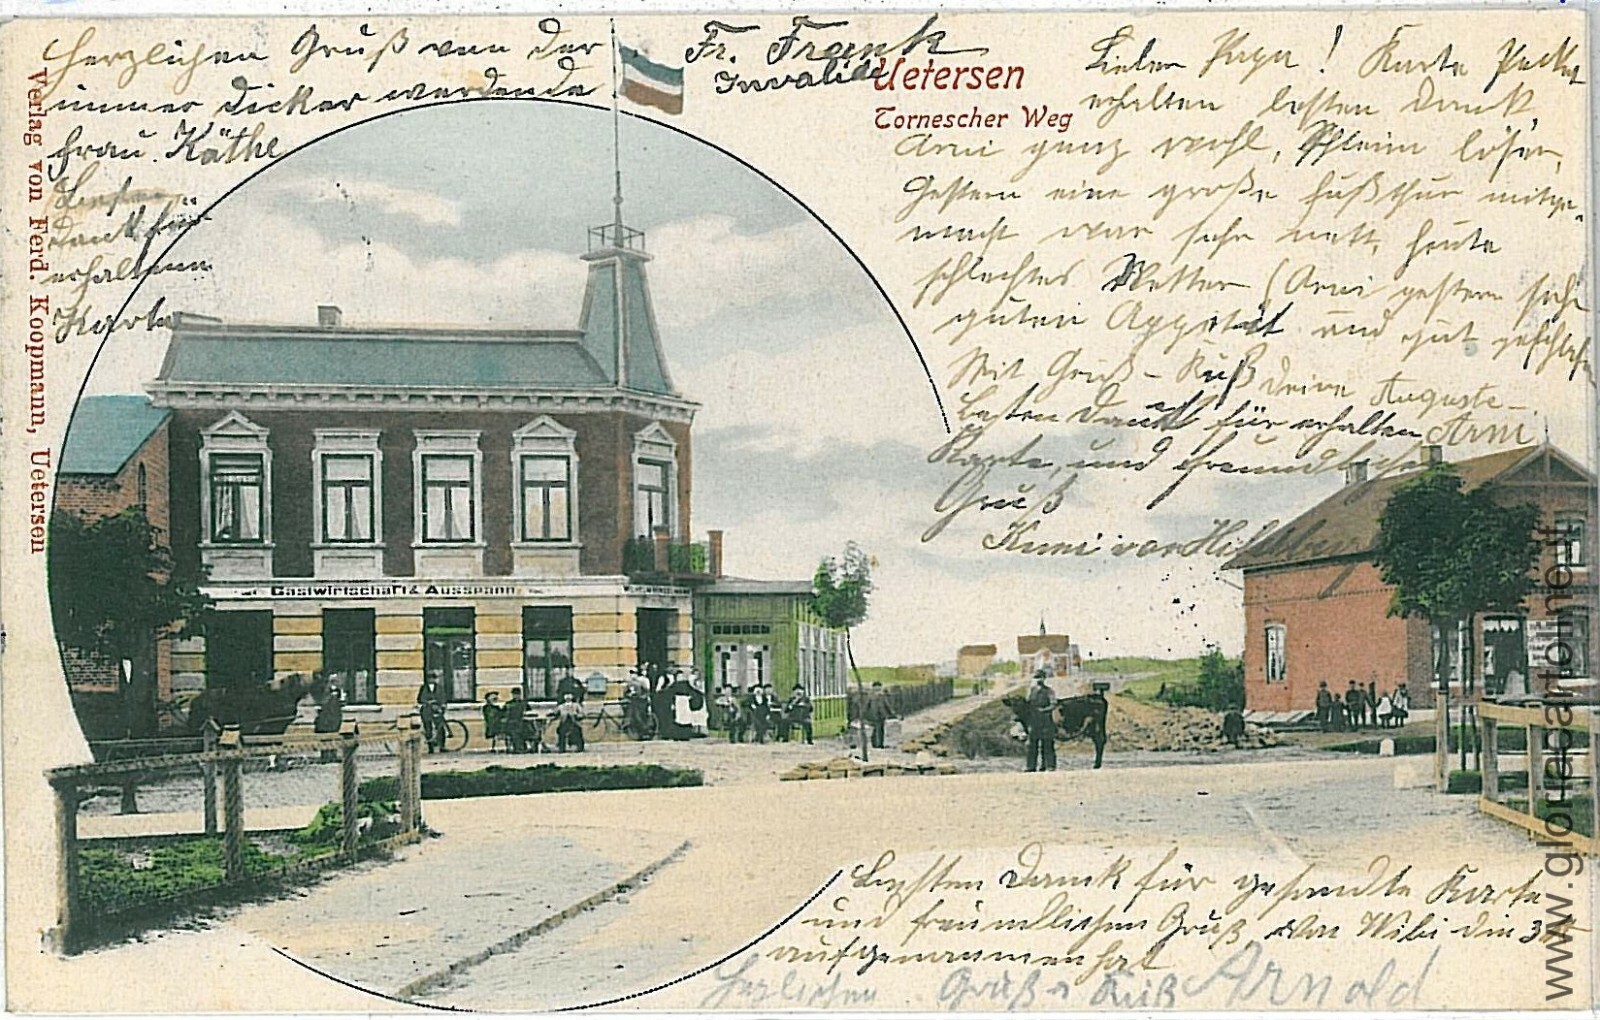 Herzlichen Gruß von der
immer dicker werdende
Frau Käthe
Besten
Dank für
erhaltene
Karte
Fr. Frank
Invalide
Uetersen
Tornescher Weg
Lieber Papa! Karte Packet
erhalten besten Dank,
Arni ganz wohl, Schleim lösen,
Gestern eine große Fußthur mitge-
macht war sehr nett, heute
schlechtes Wetter (Arni gestern sehr
guten Appetit und gut geschlafen
Mit Gruß - Kuß Deine Auguste -
Arni
Besten Dank für erhalten
Karte, und freundlichen
Gruß
von
Verlag von Ferd. Koopmann, Uetersen
Gastwirtschaft & Ausspann
Besten Dank für gesandte Karte
und freundlichen Gruß von Wibi die
aufgenommen hat
Herzlichen Gruß & Kuß Arnold
www.gloriacartoline.it